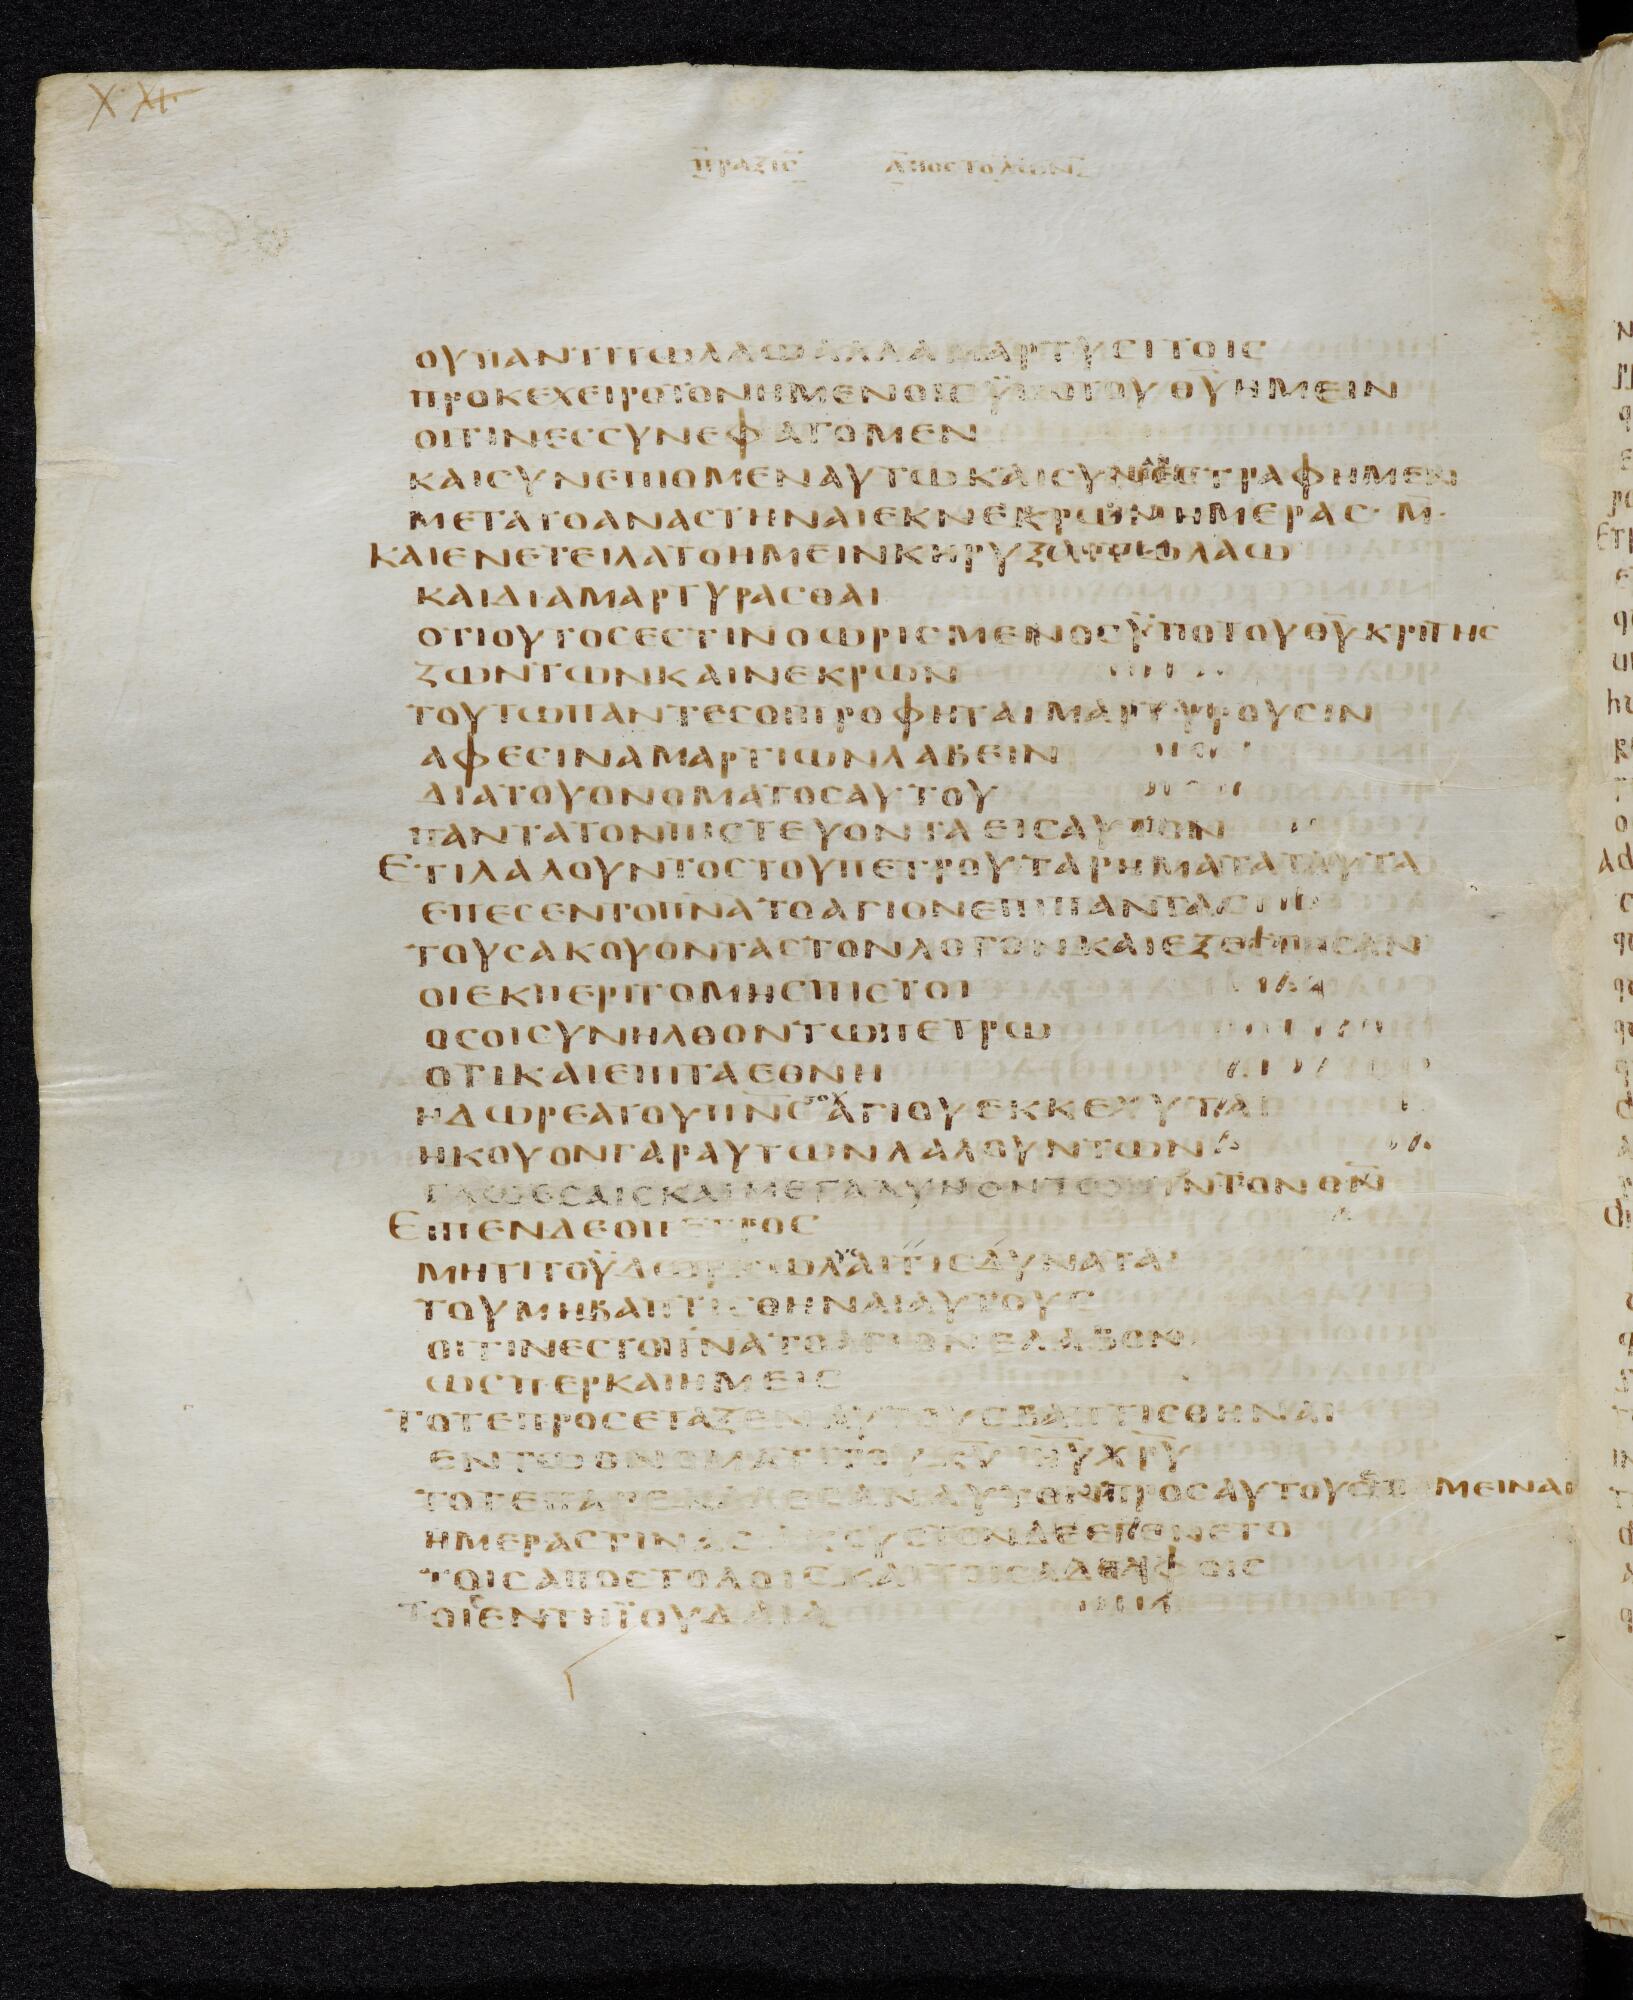 X XI
ΠΡΑΞΙΣ ΑΠΟΣΤΟΛΩΝ
ΟΥΠΑΝΤΙΤΩΛΑΩΑΛΛΑΜΑΡΤΥΣΙΤΟΙΣ
ΠΡΟΚΕΧΕΙΡΟΤΟΝΗΜΕΝΟΙΣΫΠΟΤΟΥΘΥΗΜΕΙΝ
ΟΙΤΙΝΕΣΣΥΝΕΦΑΓΟΜΕΝ
ΚΑΙΣΥΝΕΠΙΟΜΕΝΑΥΤΩΚΑΙΣΥΝΕΣΤΡΑΦΗΜΕΝ
ΜΕΤΑΤΟΑΝΑΣΤΗΝΑΙΕΚΝΕΚΡΩΝΗΜΕΡΑΣ·Μ̅·
ΚΑΙΕΝΕΤΕΙΛΑΤΟΗΜΕΙΝΚΗΡΥΞΑΙΤΩΛΑΩ
ΚΑΙΔΙΑΜΑΡΤΥΡΑΣΘΑΙ
ΟΤΙΟΥΤΟΣΕΣΤΙΝΟΩΡΙΣΜΕΝΟΣΫΠΟΤΟΥΘΥΚΡΙΤΗΣ
ΖΩΝΤΩΝΚΑΙΝΕΚΡΩΝ
ΤΟΥΤΩΠΑΝΤΕΣΟΙΠΡΟΦΗΤΑΙΜΑΡΤΥΡΟΥΣΙΝ
ΑΦΕΣΙΝΑΜΑΡΤΙΩΝΛΑΒΕΙΝ
ΔΙΑΤΟΥΟΝΟΜΑΤΟΣΑΥΤΟΥ
ΠΑΝΤΑΤΟΝΠΙΣΤΕΥΟΝΤΑΕΙΣΑΥΤΟΝ
ΕΤΙΛΑΛΟΥΝΤΟΣΤΟΥΠΕΤΡΟΥΤΑΡΗΜΑΤΑΤΑΥΤΑ
ΕΠΕΣΕΝΤΟΠΝΑΤΟΑΓΙΟΝΕΠΙΠΑΝΤΑΣ
ΤΟΥΣΑΚΟΥΟΝΤΑΣΤΟΝΛΟΓΟΝΚΑΙΕΞΕΣΤΗΣΑΝ
ΟΙΕΚΠΕΡΙΤΟΜΗΣΠΙΣΤΟΙ
ΟΣΟΙΣΥΝΗΛΘΟΝΤΩΠΕΤΡΩ
ΟΤΙΚΑΙΕΠΙΤΑΕΘΝΗ
ΗΔΩΡΕΑΤΟΥΠΝΣΤΟΥΑΓΙΟΥΕΚΚΕΧΥΤΑΙ
ΗΚΟΥΟΝΓΑΡΑΥΤΩΝΛΑΛΟΥΝΤΩΝ
ΓΛΩΣΣΑΙΣΚΑΙΜΕΓΑΛΥΝΟΝΤΩΝΤΟΝΘΝ
ΕΙΠΕΝΔΕΟΠΕΤΡΟΣ
ΜΗΤΙΤΟΫΔΩΡΚΩΛΥΣΑΙΤΙΣΔΥΝΑΤΑΙ
ΤΟΥΜΗΒΑΠΤΙΣΘΗΝΑΙΑΥΤΟΥΣ
ΟΙΤΙΝΕΣΤΟΠΝΑΤΟΑΓΙΟΝΕΛΑΒΟΝ
ΩΣΠΕΡΚΑΙΗΜΕΙΣ
ΤΟΤΕΠΡΟΣΕΤΑΞΕΝΑΥΤΟΥΣΒΑΠΤΙΣΘΗΝΑΙ
ΕΝΤΩΟΝΟΜΑΤΙΤΟΥΚΥΙΗΥΧΡΥ
ΤΟΤΕΠΑΡΕΚΑΛΕΣΑΝΑΥΤΟΝΠΡΟΣΑΥΤΟΥΣ ΜΕΙΝΑΙ
ΗΜΕΡΑΣΤΙΝΑΣΑΚΟΥΣΤΟΝΔΕΕΓΕΝΕΤΟ
ΤΟΙΣΑΠΟΣΤΟΛΟΙΣΚΑΙΤΟΙΣΑΔΕΛΦΟΙΣ
ΤΟΙΣΕΝΤΗΪΟΥΔΑΙΑ